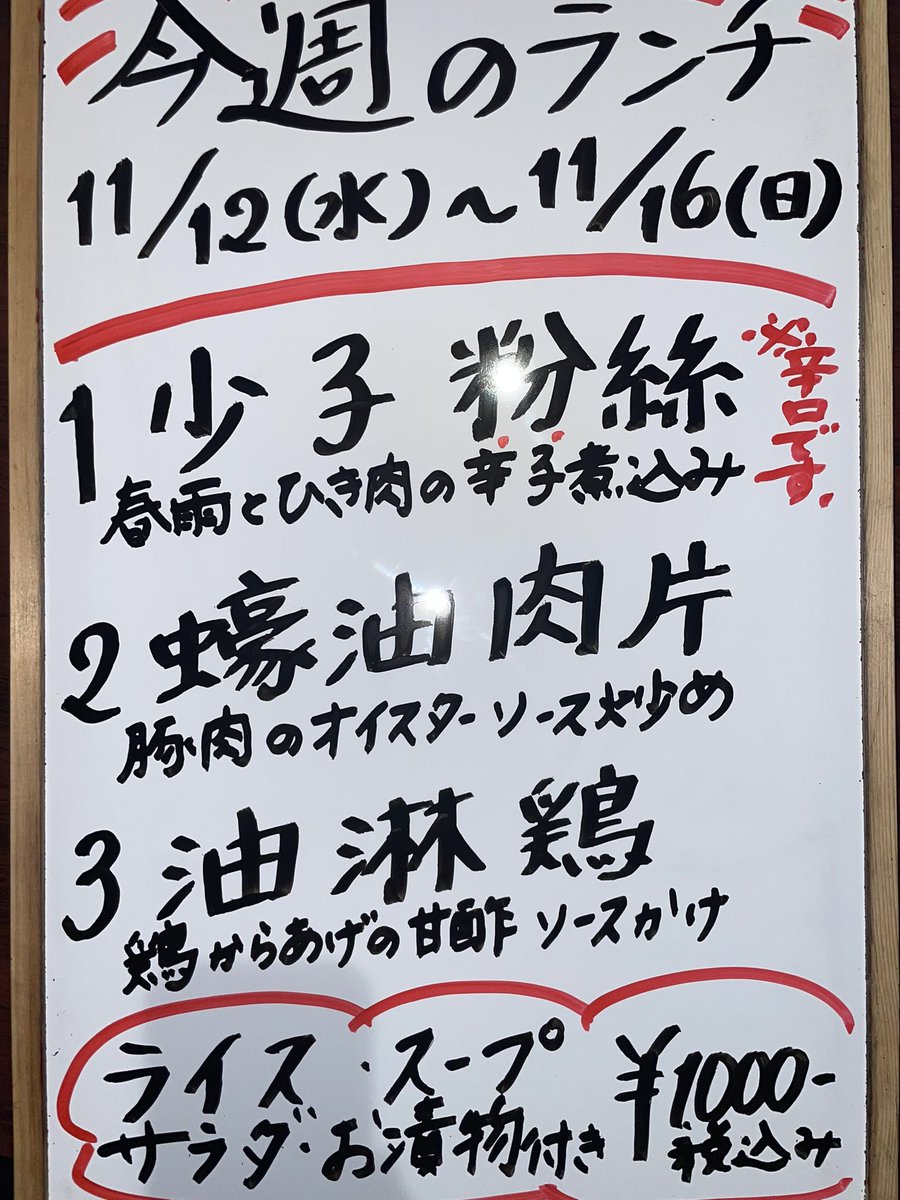 今週のランチ
11/12(水)～11/16(日)
1 少子粉絲
※辛口です。
春雨とひき肉の辛子煮込み
2 蠔油肉片
豚肉のオイスターソース炒め
3 油淋鶏
鶏からあげの甘酢ソースかけ
ライス・スープ
サラダ・お漬物付き
¥1000-
税込み